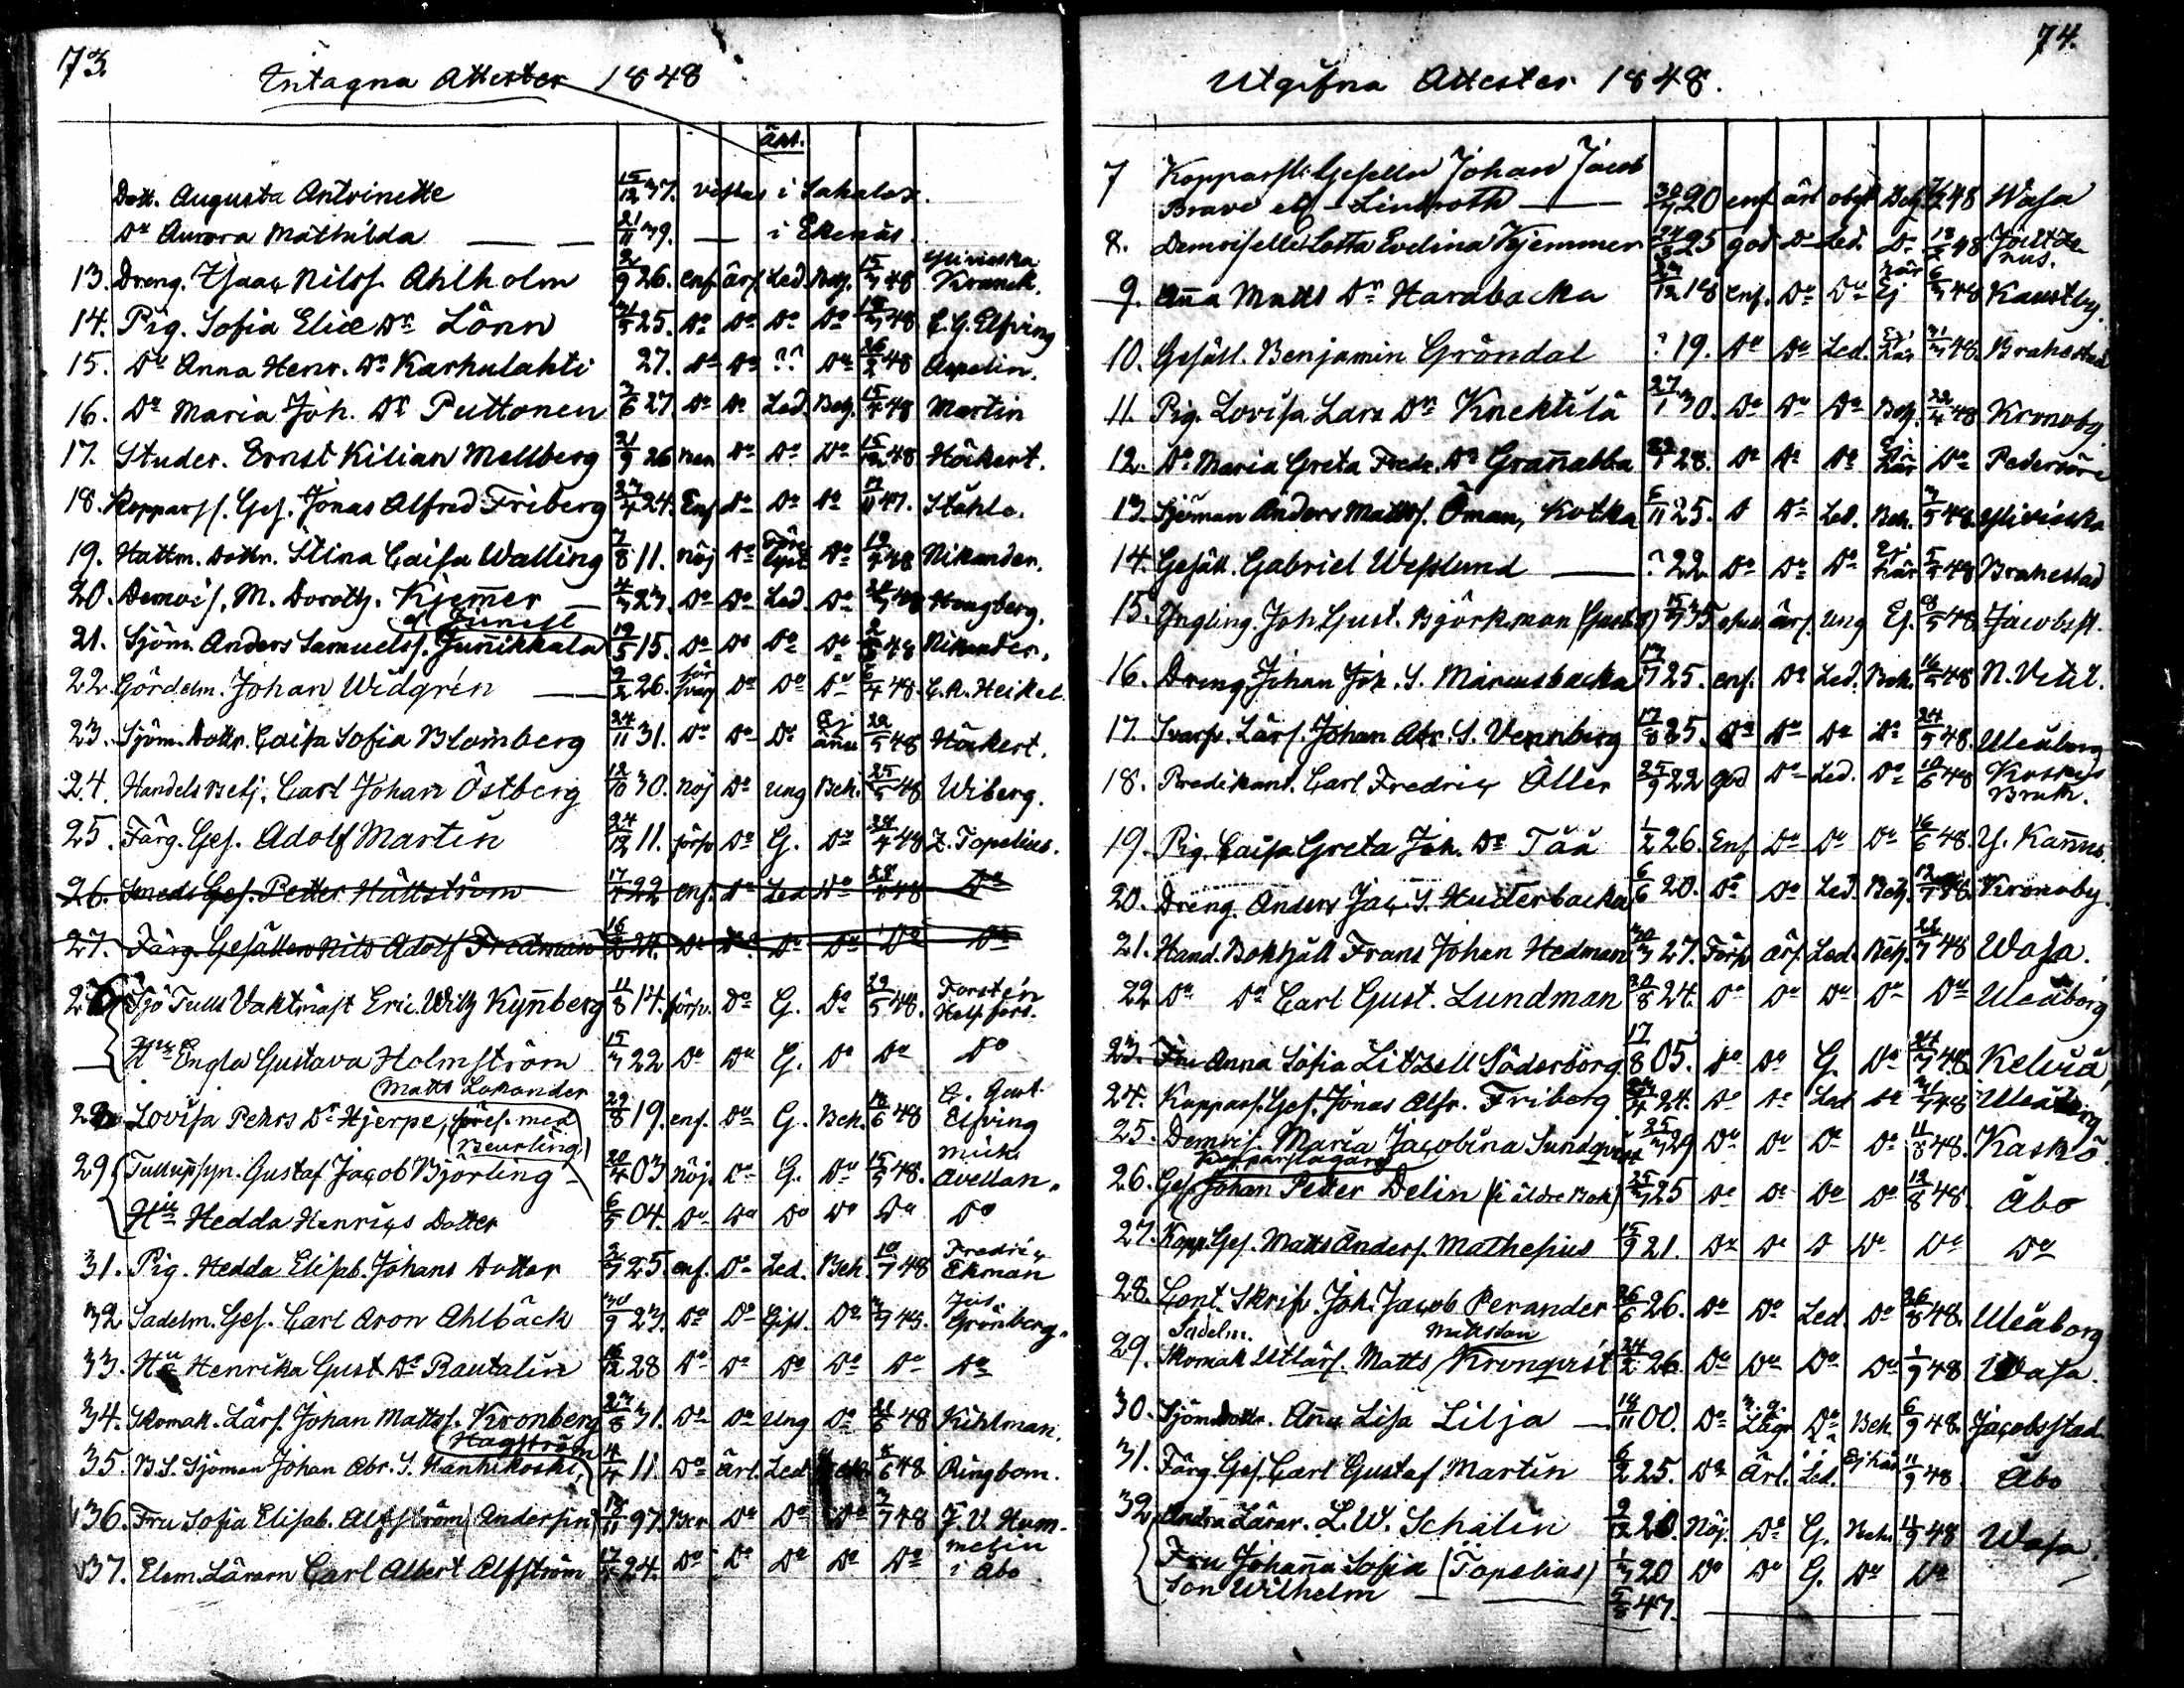 73.
Intagna Attester 1848
äkt.
Dott. Augusta Antoinette 15/12 37. vistas i Sakalax.
Dr Aurora Mathilda — — 21/11 39. — i Ekenäs.
13. Dreng. Isaac Nilss. Ahlholm 2/9 26. enf. ärf. Led. Beh. 15/3 48 Ylivieska Kranck.
14. Pig. Sofia Eliæ Dr Lönn 31/5 25. Do Do Do Do 48 C. G. Elfving
15. Do Anna Henr. Dr Karhulahti 27. Do Do ?? Do 26/2 48 Aspelin.
16. Do Maria Joh. Dr Puttonen 3/6 27 Do Do Led. Beh. 15/4 48 Martin
17. Studer. Ernst Kilian Mellberg 21/9 26 Ben Do Do Do 15/12 48 Höckert.
18. Kopparsl. Ges. Jonas Alfred Friberg 23/4 24. Enf Do Do Do 17/11 47. Ståhle.
19. Hattm. Dottr. Stina Caisa Walling 7/8 11. nöj Do Do 48 Nikander.
20. Demois. M. Doroth. Kjemmer — 4/3 23. Do Do Led. Do 48 Hougberg.
el Junell
21. Sjöm. Anders Samuelss. Junnikkala 19/5 15. Do Do Do Do 48 Nikander.
22. Gördelm. Johan Widgrén — 9/2 26. för svar Do Do Do 6/4 48. C. A. Heikel.
23. Sjöm. Dottr. Caisa Sofia Blomberg 24/11 31. Do Do Do Ej ännu 22/5 48 Höckert.
24. Handels Betj. Carl Johan Östberg 12/10 30. nöj Do ung Beh. 25/5 48 Wiberg.
25. Färg. Ges. Adolf Martin 24/12 11. försv Do G. Do 28/4 48 Z. Topelius.
26. Smeds Ges. Petter Hättström 17/4 22 enf. Do Led Do 28/4 48 Do
27. Färg. Gesällen Nils Adolf Fredman 16/2 24. Do Do Do Do Do Do
Sjö Tulls Vaktmäst Eric Wilh Kynnberg 11/8 14. försv. Do G. Do 29/5 48. Forstén Helsfors.
Hu Engla Gustava Holmström 15/3 22 Do Do G. Do Do Do
Matts Lakander
Lovisa Pehrs Dr Hjerpe, föref. med 29/8 19. enf. Do G. Beh. 18/6 48 C. Gust. Elfving
(Beurling)
29. Tulluppsyn. Gustaf Jacob Björling 20/4 03. nöj. Do G. Do 15/5 48. Mich. Avellan.
Hu Hedda Henrics Dotter 6/5 04. Do Do Do Do Do Do
31. Pig. Hedda Elisab. Johans Dotter 25. enf. Do Led. Beh. 10/7 48 Fredric Ekman
32 Sadelm. Ges. Carl Aron Ahlbäck 30/9 23. Do Do Gift. Do Grönberg.
33. Hu Henrika Gust. Dr Rautalin 16/12 28 Do Do Do Do Do Do
34. Skomak. Lärf. Johan Mattss. Kronberg 23/8 31. Do Do Ung Do 21/6 48 Kihlman.
Hagström
35. B. S. Sjöman Johan Abr. S. Hanhikoski, 4/4 11 Do ärl. Led. 8/6 48 Ringbom.
36. Fru Sofia Elisab. Alfström (Andersin) 13/11 97. Ber Do Do Do 3/7 48 F. V. Hummelin
37. Elem. Läraren Carl Albert Alfström 24. Do Do Do Do Do i Åbo
74.
Utgifna Attester 1848.
7 Kopparsl. Gesellen Johan Jacob
Brave el — Lindroth — 30/7 20 enf ärl obgt Beh. 48 Wasa
8. Demoiselle Lotta Evelina Kjemmer 24/3 25 god Do Led. Do 18/2 48
9. Anna Matts Dr Harabacka 23/12 18 enf. Do Do Ej här 6/3 48 Kaustby.
10. Gesäll. Benjamin Gröndal ? 19. Do Do Led. Ej här 31/3 48. Brahestad
11. Pig. Lovisa Lars Dr Knektilä 27/1 30. Do Do Do Beh. 22/4 48 Kronoby.
12. Do Maria Greta Fredr. Dr Grannabba 28. Do Do Do Ej här Do Pedersöre
13. Sjöman Anders Mattss. Öman, Kotka 6/11 25. D Do Led. Beh. 3/5 48. Ylivieska
14. Gesäll. Gabriel Wesslund — ? 22. Do Do Do Ej här 5/5 48 Brahestad
15. Yngling. Joh. Gust. Björkman 35 ärf. ung Ej. 48. Jacobst.
16. Dreng. Johan Joh. S. Marcusbacka 25. enf. Do Led. Beh. 16/5 48 N. Vetil.
17. Svarfv. Lärl. Johan Abr. S. Vennberg 17/8 25. Do Do Do Do 24/5 48. Uleåborg
18. Predikant. Carl Fredric Öller 25/9 22 god Do Led. Do 10/6 48 Koskis Bruk.
19. Pig. Caisa Greta Joh. Dr Tåå 1/2 26. Enf Do Do Do 16/6 48. Y. Kannus.
20. Dreng. Anders Jac. S. Huderbacka 6/6 20. Do Do Led. Beh. 48. Kronoby.
21. Hand. Bokhåll Frans Johan Hedman 30/3 27. Försv ärf. Led. Beh. 22/7 48 Wasa.
22 Do Do Carl Gust. Lundman 20/8 24. Do Do Do Do Do Uleåborg
23. Fru Anna Sofia Litzell Söderborg 17/8 05. Do Do G. Do 24/7 48. Kelviå,
24. Kopparsl. Ges. Jonas Alfr. Friberg 23/4 24. Do Do Led Do 31/7 48 Uleåborg
25. Demois. Maria Jacobina Sundqvist 25/3 29 Do Do Do Do 11/8 48. Kaskö.
Kopparslagare
26. Ges. Johan Petter Delin (i äldre Bok) 25/3 25 Do Do Do Do 12/8 48. Åbo
27. Kopp. Ges. Matts Anders. Mathesius 15/9 21. Do Do D Do Do Do
28. Cont. Skrifv. Joh. Jacob Perander 26/6 26. Do Do Led. Do 26/8 48. Uleåborg
Sadelm. Mattsson
29. Skomak Utlärf. Matts Kronqvist 24/2 26. Do Do Do Do 1/9 48 Wasa.
30. Sjöm. Dottr. Anna Lisa Lilja — 18/11 00. Do Lägr Do Beh. 6/9 48. Jacobsstad.
31. Färg. Ges. Carl Gustaf Martin 6/2 25. Do Ärl. Led. Ej här 11/9 48 Åbo
32 Andra Lärar. L. W. Schalin 9/12 20. Nöj. Do G. Beh. 11/9 48 Wasa.
Fru Johanna Sofia (Topelius) 1/3 20 Do Do G. Do Do
Son Wilhelm — — 5/8 47.